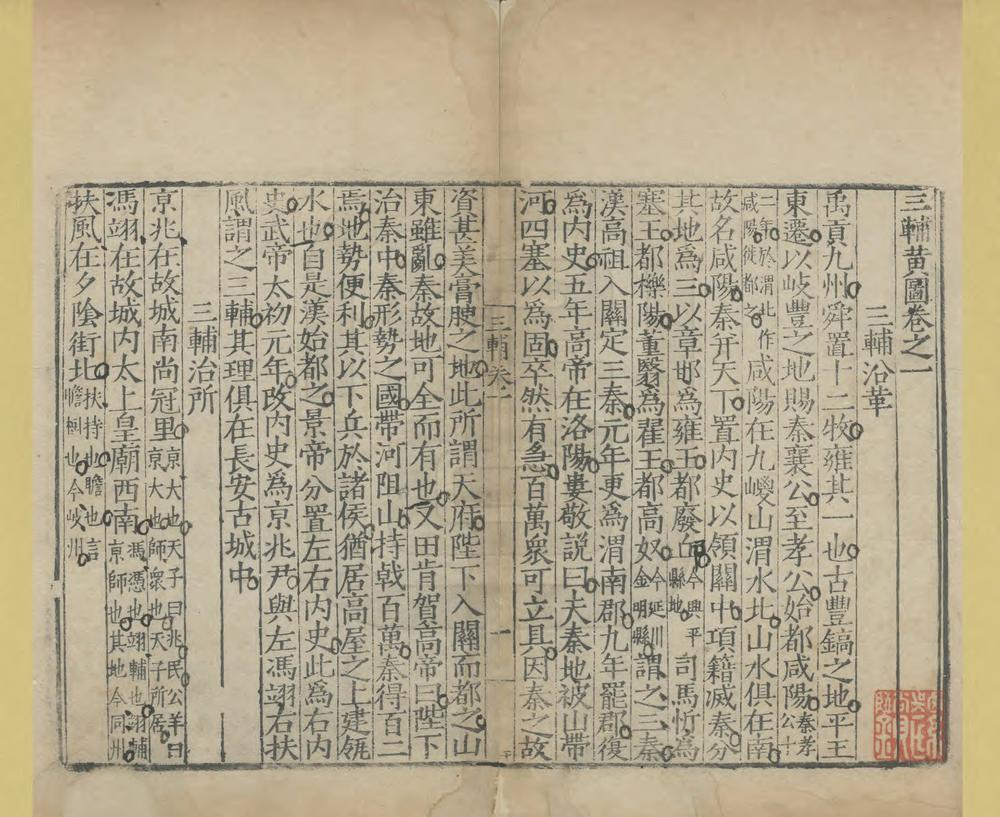 三輔黄圖卷之一
三輔沿革
禹貢九州舜置十二牧雍其一也古豐鎬之地平王
東遷以岐豐之地賜秦襄公至孝公始都咸陽秦孝公十
二年於渭北咸陽徙都之作咸陽在九嵕山渭水北山水俱在南
故名咸陽秦并天下置内史以領關中項籍滅秦分
其地爲三以章邯爲雍王都廢丘今興平縣地司馬忻爲
塞王都櫟陽董翳爲翟王都高奴今延川金明縣謂之三秦
漢高祖入關定三秦元年更爲渭南郡九年罷郡復
爲内史五年高帝在洛陽婁敬説曰夫秦地被山帶
河四塞以爲固卒然有急百萬衆可立具因秦之故
三輔卷一
一
資甚美膏腴之地此所謂天府陛下入關而都之山
東雖亂秦故地可全而有也又田肯賀高帝曰陛下
治秦中秦形勢之國帶河阻山持戟百萬秦得百二
焉地勢便利其以下兵於諸侯猶居高屋之上建瓴
水也自是漢始都之景帝分置左右内史此爲右内
史武帝太初元年改内史爲京兆尹與左馮翊右扶
風謂之三輔其理俱在長安古城中
三輔治所
京兆在故城南尚冠里京大也天子曰兆民公羊曰京大也師衆也天子所居
馮翊在故城内太上皇廟西南馮憑也翊輔也羽輔京師也其地今同州
扶風在夕陰街北扶持也瞻也言瞻也今岐州